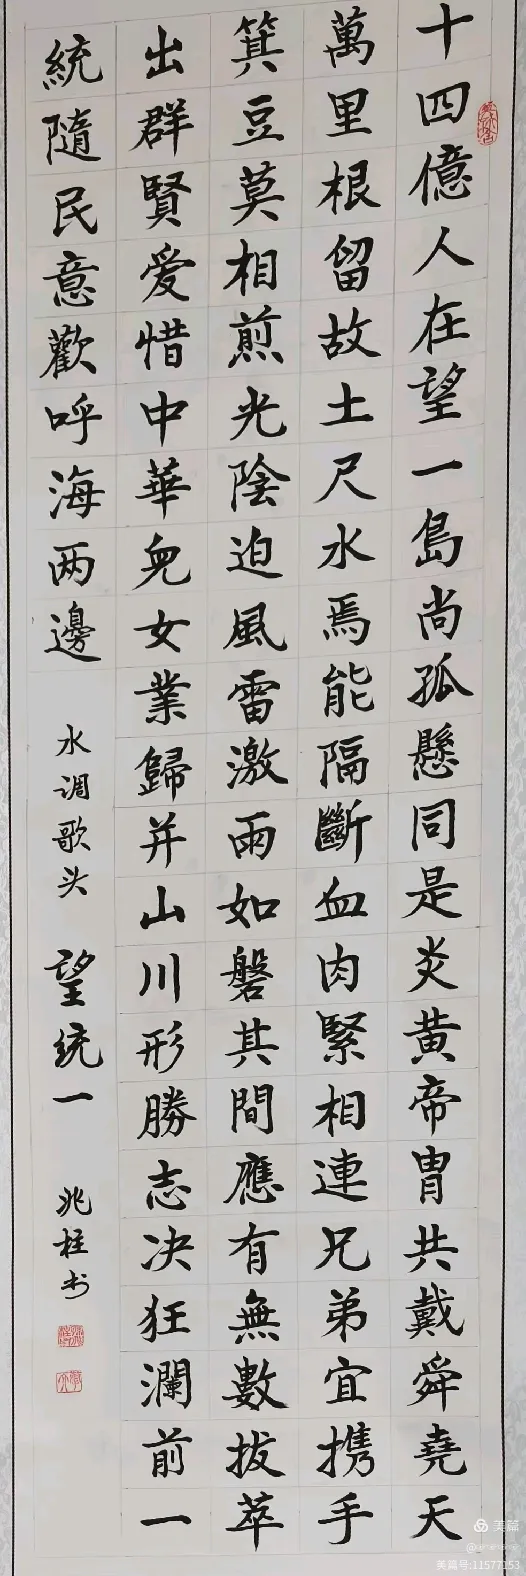 十四億人在望一島尚孤懸同是炎黄帝胄共戴舜堯天
萬里根留故土尺水焉能隔斷血肉緊相連兄弟宜携手
箕豆莫相煎光陰迫風雷激雨如磐其間應有無數拔萃
出群賢爱惜中華兒女業歸并山川形勝志决狂瀾前一
統隨民意歡呼海两邊
水调歌头 望统一 兆柱书
美篇
美篇号:11577153